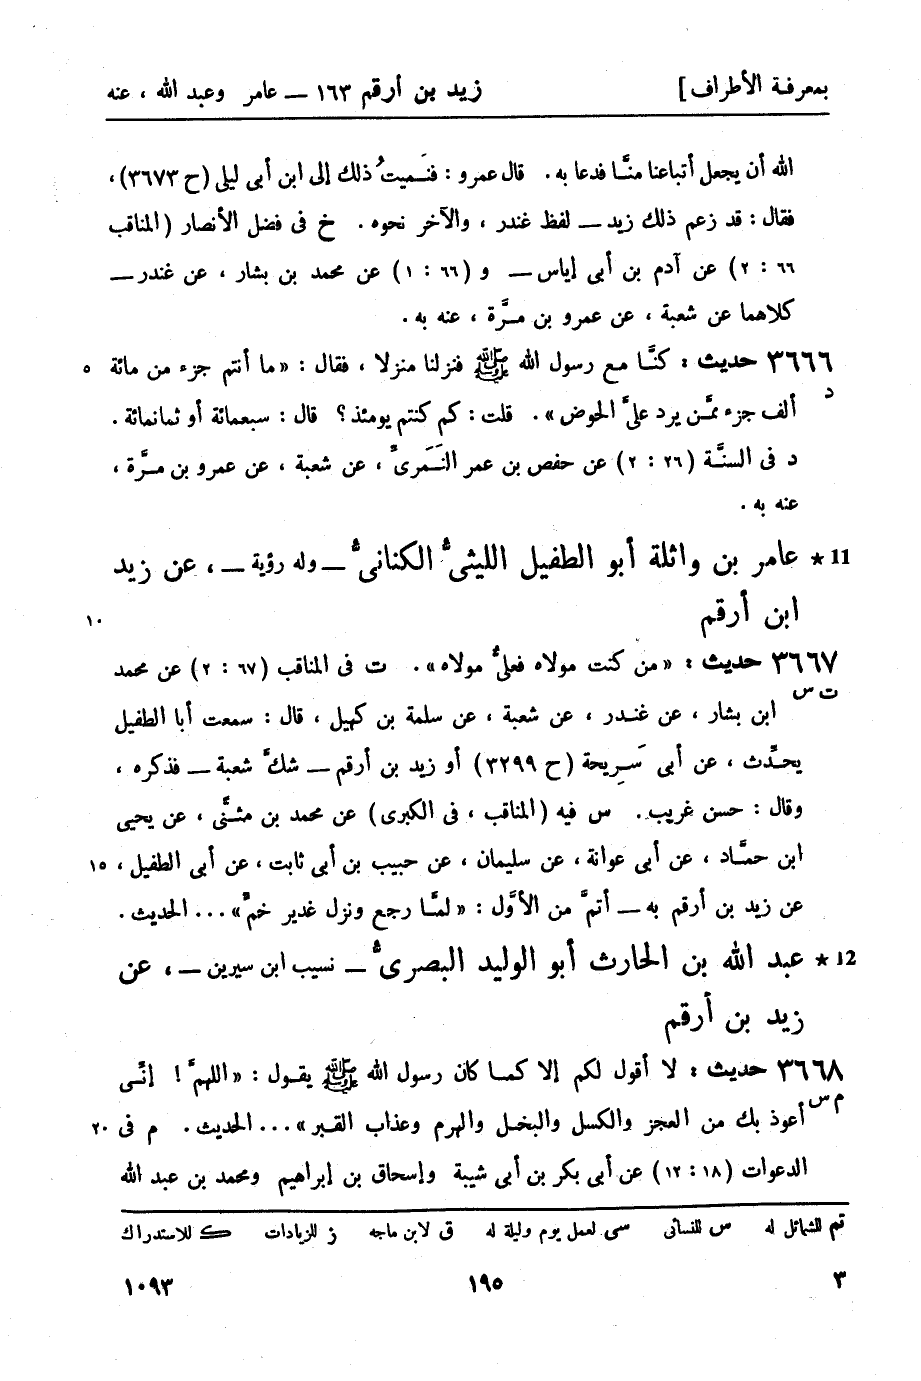 بمعرفة الأطراف] زيد بن أرقم ١٦٣ ــ عامر وعبد الله ، عنه
الله أن يجعل أتباعنا منَّا فدعا به . قال عمرو : فنَميتُ ذلك إلى ابن أبى ليلى (ح ٣٦٧٣) ،
فقال : قد زعم ذلك زيد ــ لفظ غندر ، والآخر نحوه . خ فى فضل الأنصار (المناقب
٦٦ : ٢) عن آدم بن أبى إياس ــ و (٦٦ : ١) عن محمد بن بشار ، عن غندر ــ
كلاهما عن شعبة ، عن عمرو بن مرَّة ، عنه به .
٣٦٦٦ حديث : كنَّا مع رسول الله ﷺ فنزلنا منزلا ، فقال : «ما أنتم جزء من مائة ٥
د ألف جزء ممَّن يرد علىَّ الحوض» . قلت : كم كنتم يومئذ؟ قال : سبعمائة أو ثمانمائة .
د فى السنَّة (٢٦ : ٢) عن حفص بن عمر النَّمَرىِّ ، عن شعبة ، عن عمرو بن مرَّة ،
عنه به .
11 * عامر بن واثلة أبو الطفيل الليثىُّ الكنانىُّ ــ وله رؤية ــ ، عن زيد
ابن أرقم ١٠
٣٦٦٧ حديث : «من كنت مولاه فعلىُّ مولاه» . ت فى المناقب (٦٧ : ٢) عن محمد
ت س ابن بشار ، عن غندر ، عن شعبة ، عن سلمة بن كهيل ، قال : سمعت أبا الطفيل
يحدِّث ، عن أبى سَرِيحة (ح ٣٢٩٩) أو زيد بن أرقم ــ شكَّ شعبة ــ فذكره ،
وقال : حسن غريب . س فيه (المناقب ، فى الكبرى) عن محمد بن مثنَّى ، عن يحيى
ابن حمَّاد ، عن أبى عوانة ، عن سليمان ، عن حبيب بن أبى ثابت ، عن أبى الطفيل ، ١٥
عن زيد بن أرقم به ــ أتمَّ من الأوَّل : «لمَّا رجع ونزل غدير خمٍّ» ... الحديث .
12 * عبد الله بن الحارث أبو الوليد البصرىُّ ــ نسيب ابن سيرين ــ ، عن
زيد بن أرقم
٣٦٦٨ حديث : لا أقول لكم إلا كما كان رسول الله ﷺ يقول : «اللهمَّ ! إنَّى
م س أعوذ بك من العجز والكسل والبخل والهرم وعذاب القبر» ... الحديث . م فى ٢٠
الدعوات (١٨ : ١٢) عن أبى بكر بن أبى شيبة وإسحاق بن إبراهيم ومحمد بن عبد الله
تم للشمائل له س للنسائى سى لعمل يوم وليلة له ق لابن ماجه ز للزيادات ك للاستدراك
٣ ١٩٥ ١٠٩٣